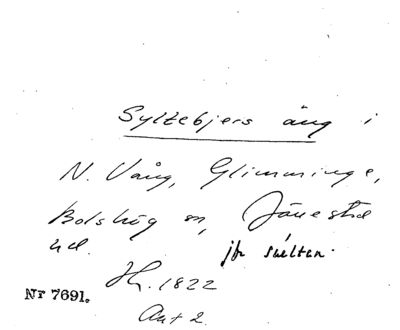 Syltebjers äng i
N. Vång, Glimminge,
Bolshög sn, Järrestad
hd. jfr sülten.
Hr. 1822
Nr 7691.
Akt 2.